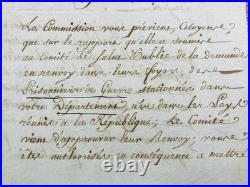 La Commission vous prévient, Citoyens
que sur le rapport qu'elle a soumise
au Comité de Salut Public de la demande
en renvoy dans leurs foyers, des
Prisonniers de Guerre stationnés dans
votre Département, nés dans les Pays
réunis à la République; le Comité
vient d'approuver leur Renvoy; vous
êtes authorisés en conséquence a mettre